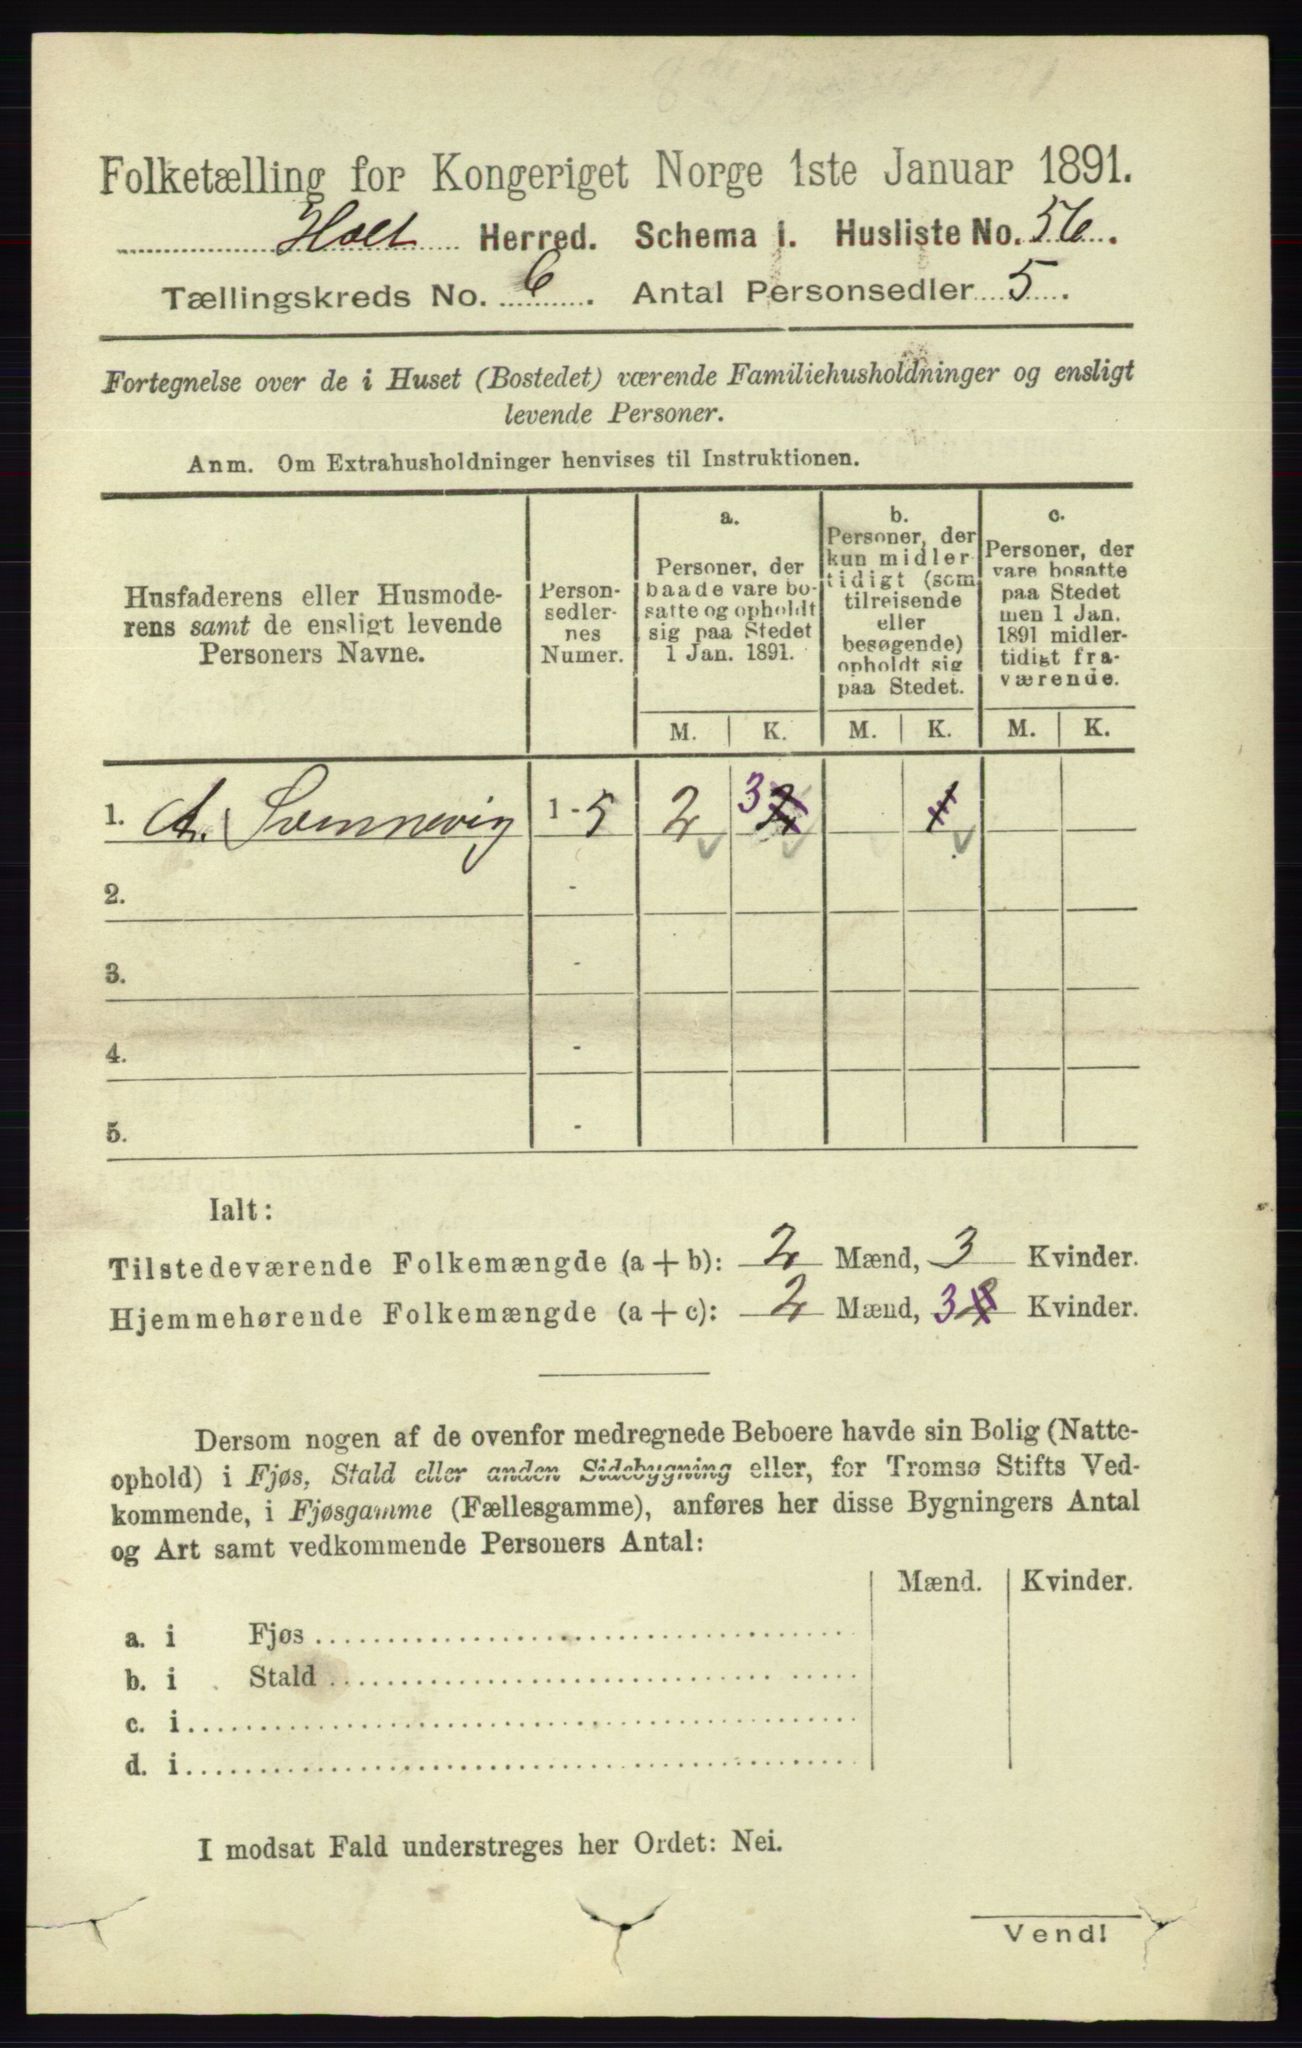 Folketælling for Kongeriget Norge 1ste Januar 1891.
Holt Herred. Schema i. Husliste No. 56.
Tællingskreds No. 6. Antal Personsedler 5.
Fortegnelse over de i Huset (Bostedet) værende Familiehusholdninger og ensligt
levende Personer.
Anm. Om Extrahusholdninger henvises til Instruktionen.
Husfaderens eller Husmode-
rens samt de ensligt levende
Personers Navne.
Person-
sedler-
nes
Numer.
a.
Personer, der
baade vare bo-
satte og opholdt
sig paa Stedet
1 Jan. 1891.
b.
Personer, der
kun midler-
tidigt (som
tilreisende
eller
besøgende)
opholdt sig
paa Stedet.
c.
Personer, der
vare bosatte
paa Stedet
men 1 Jan.
1891 midler-
tidigt fra-
værende.
M. K. M. K. M. K.
1. A. 1 - 5 2 3 2 1
2. -
3. -
4. -
5. -
Ialt:
Tilstedeværende Folkemængde (a + b): 2 Mænd, 3 Kvinder.
Hjemmehørende Folkemængde (a + c): 2 Mænd, 3 2 Kvinder.
Dersom nogen af de ovenfor medregnede Beboere havde sin Bolig (Natte-
ophold) i Fjøs, Stald eller anden Sidebygning eller, for Tromsø Stifts Ved-
kommende, i Fjøsgamme (Fællesgamme), anføres her disse Bygningers Antal
og Art samt vedkommende Personers Antal:
Mænd. Kvinder.
a. i Fjøs
b. i Stald
c. i
d. i
I modsat Fald understreges her Ordet: Nei.
Vend!